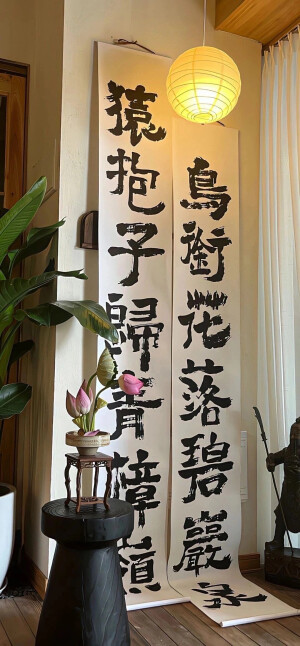 猿抱子歸青樟嶺
鳥銜花落碧巖泉